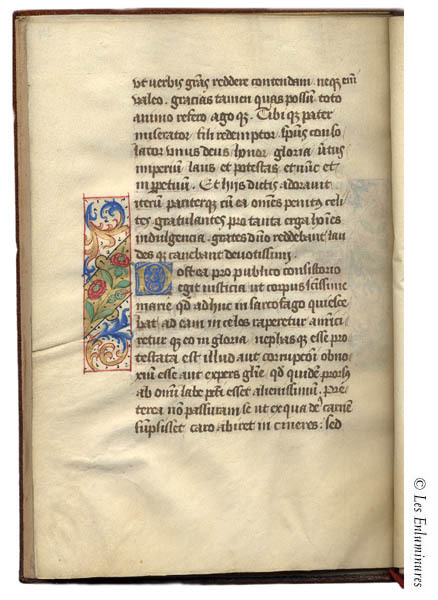 ut verbis grãs reddere contendam. neqz em̃
valeo. gracias tamen quas possũ toto
animo refero ago qz. Tibi qz pater
miserator fili redemptor sp̃us conso
lator unus deus honor gloria virtus
imperium laus et potestas et nũc et
in p̱petuum. Et hijs dictis adoravit
iterũ pariterqz cũ ea om̃es penitus celi
tes gratulantes pro tanta erga hom̃es
indulgencia. grates dño reddebant lau
des qz canebant devotissimi
Postera pro publico consistorio
egit iusticia ut corpus sc̃issime
marie qd adhuc in sarcofago quiesce
bat ad eam in celos raperetur amici
retur qz eo in gloria nephas qz esse pro
testata est illud aut corrupcõi obno
xiũ esse aut expers glie qd quidẽ prorsus
ab om̃i labe pcc̃i esset alienissimũ. Pre
terea nõ passuram se ut ex qua de9 carnẽ
sũpsisset caro abiret in cineres. sed
© Les Enluminures